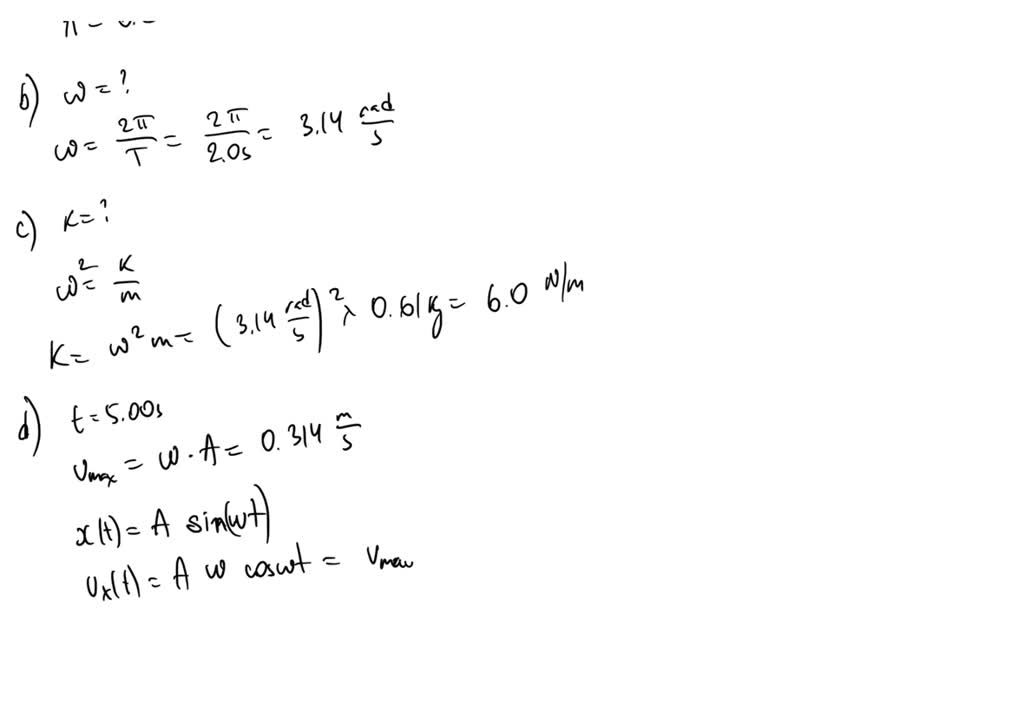 b) ω = ?
ω = 2π/T = 2π/2.0s = 3.14 rad/s
c) K = ?
ω² = K/m
K = ω² m = (3.14 rad/s)² x 0.61 kg = 6.0 N/m
d) t = 5.00s
υmax = ω · A = 0.314 m/s
x(t) = A sin(ωt)
υx(t) = A ω cosωt = υmax